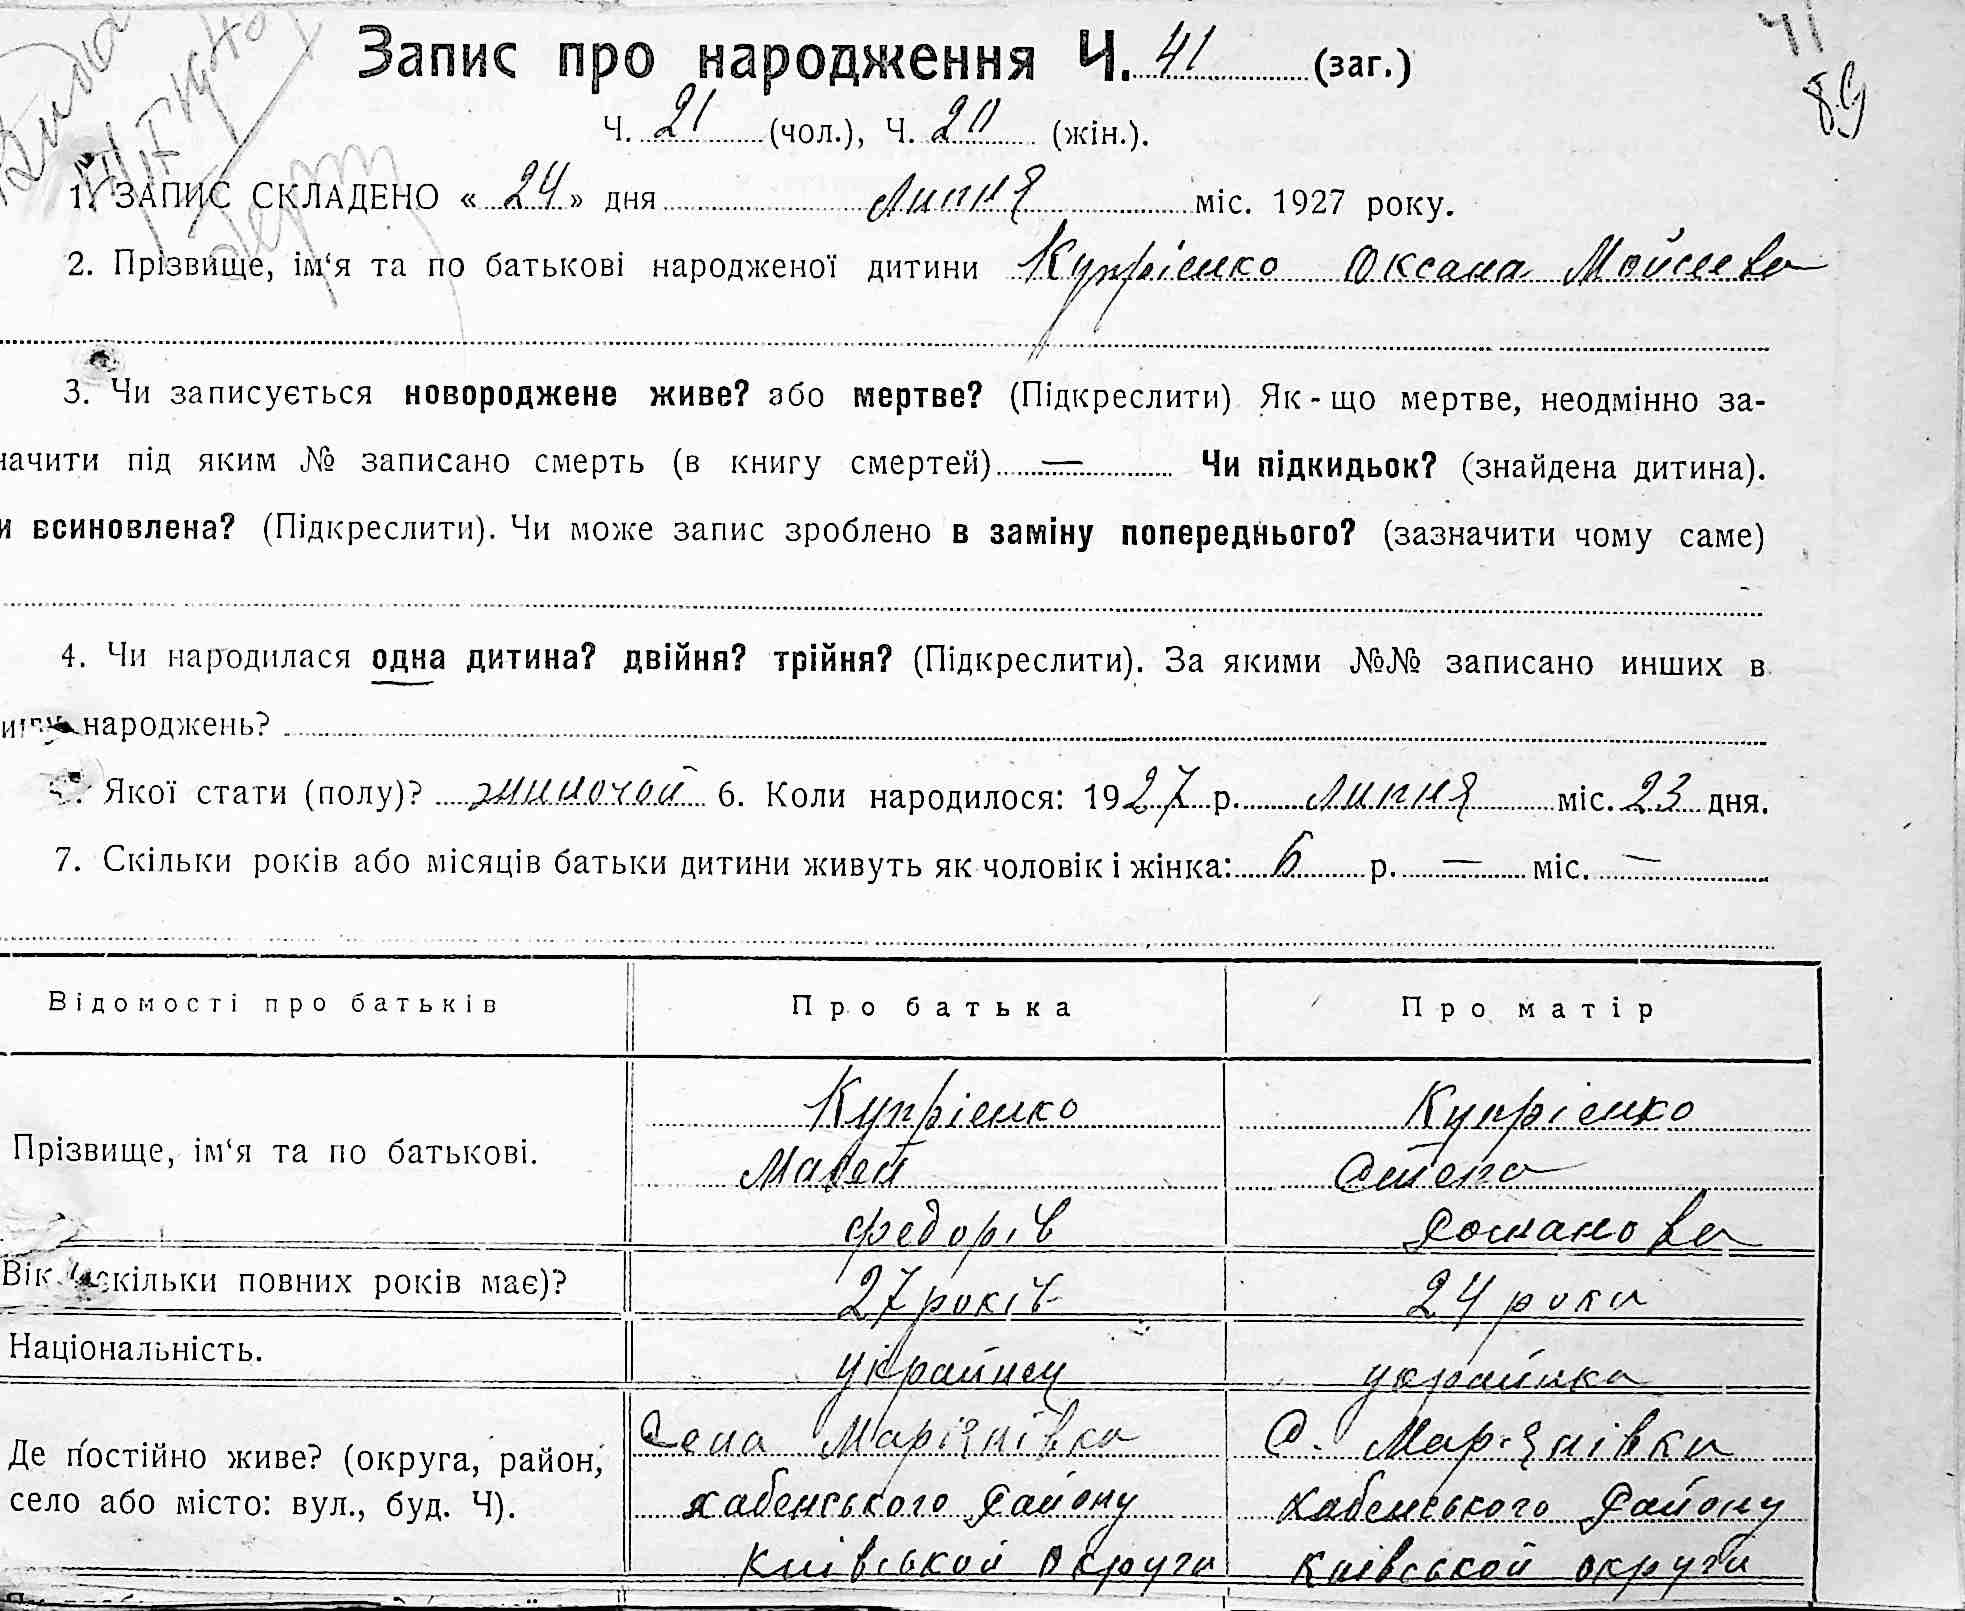 41
89
Запис про народження Ч. 41 (заг.)
Ч. 21 (чол.), Ч. 20 (жін.).
1. ЗАПИС СКЛАДЕНО « 24 » дня липня міс. 1927 року.
2. Прізвище, ім‘я та по батькові народженої дитини Купрієнко Оксана Мойсеева
3. Чи записується новороджене живе? або мертве? (Підкреслити) Як-що мертве, неодмінно за-
начити під яким № записано смерть (в книгу смертей) — Чи підкидьок? (знайдена дитина).
и всиновлена? (Підкреслити). Чи може запис зроблено в заміну попереднього? (зазначити чому саме)
4. Чи народилася одна дитина? двійня? трійня? (Підкреслити). За якими №№ записано инших в
народжень?
Якої стати (полу)? жиночой 6. Коли народилося: 1927 р. липня міс. 23 дня.
7. Скільки років або місяців батьки дитини живуть як чоловік і жінка: 6 р. — міс. —
Відомості про батьків Про батька Про матір
Прізвище, ім‘я та по батькові. Купрієнко Купрієнко
Мавей Степа
Федорів Романова
Вік (скільки повних років має)? 27 років 24 роки
Національність. украйнец украйнка
Де постійно живе? (округа, район, село або місто: вул., буд. Ч). Села Маріянівка С. Мар'янівки
Хабенського Району Хабенського Району
Київськой округи Київськой округи